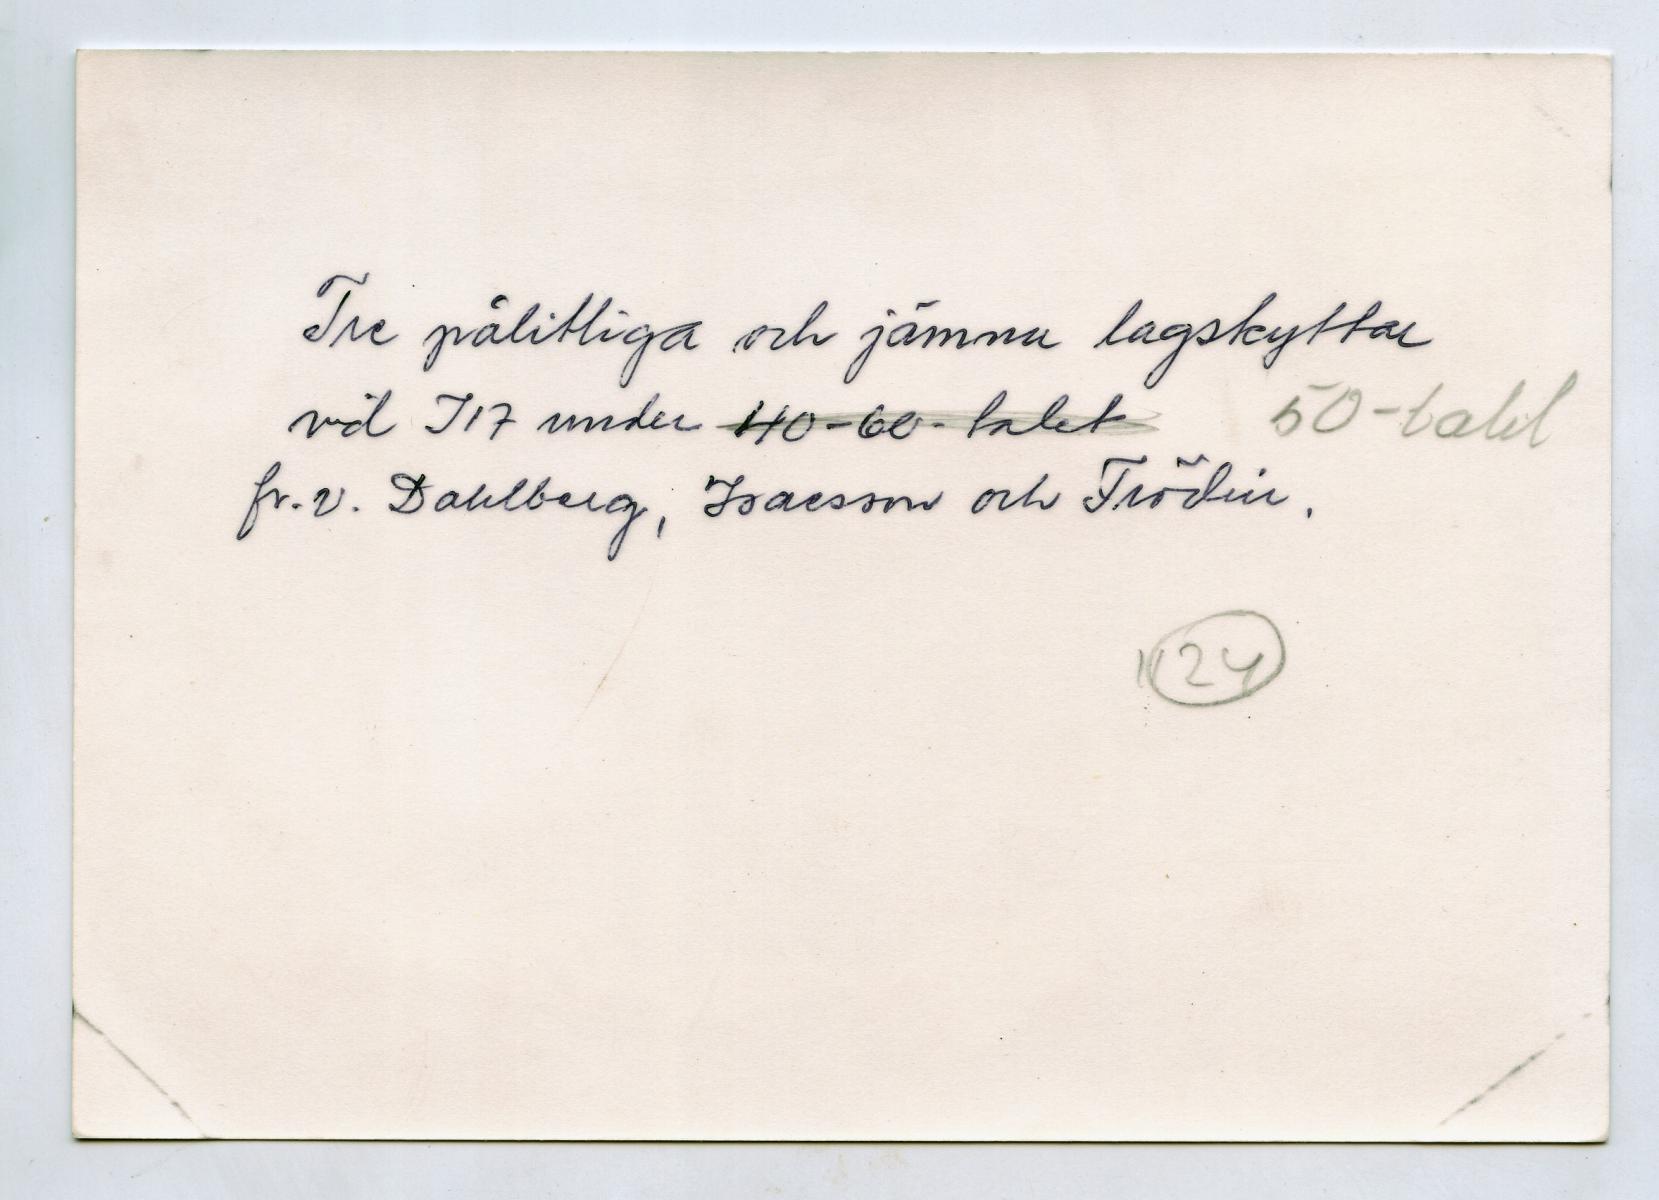 Tre pålitliga och jämna lagskyttar
vid I17 under 40-60-talet 50-talet
fr.v. Dahlberg, Isacsson och Frödin.
24